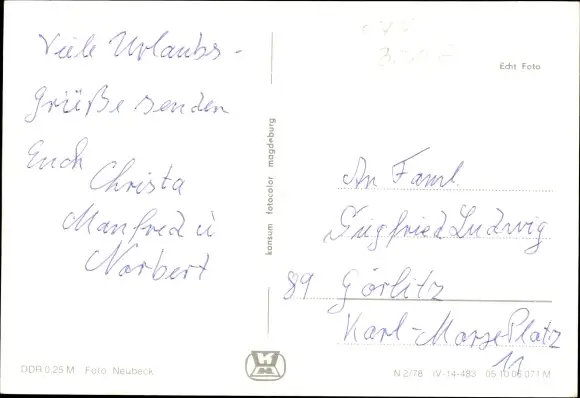 Viele Urlaubs-
grüße senden
Euch
Christa
Manfred u
Norbert
Echt Foto
konsum fotocolor magdeburg
An Faml.
Siegfried Ludwig
89 Görlitz
Karl-Marx-Platz
11
DDR 0,25 M Foto Neubeck
N 2/78 IV-14-483 05 10 06 071 M